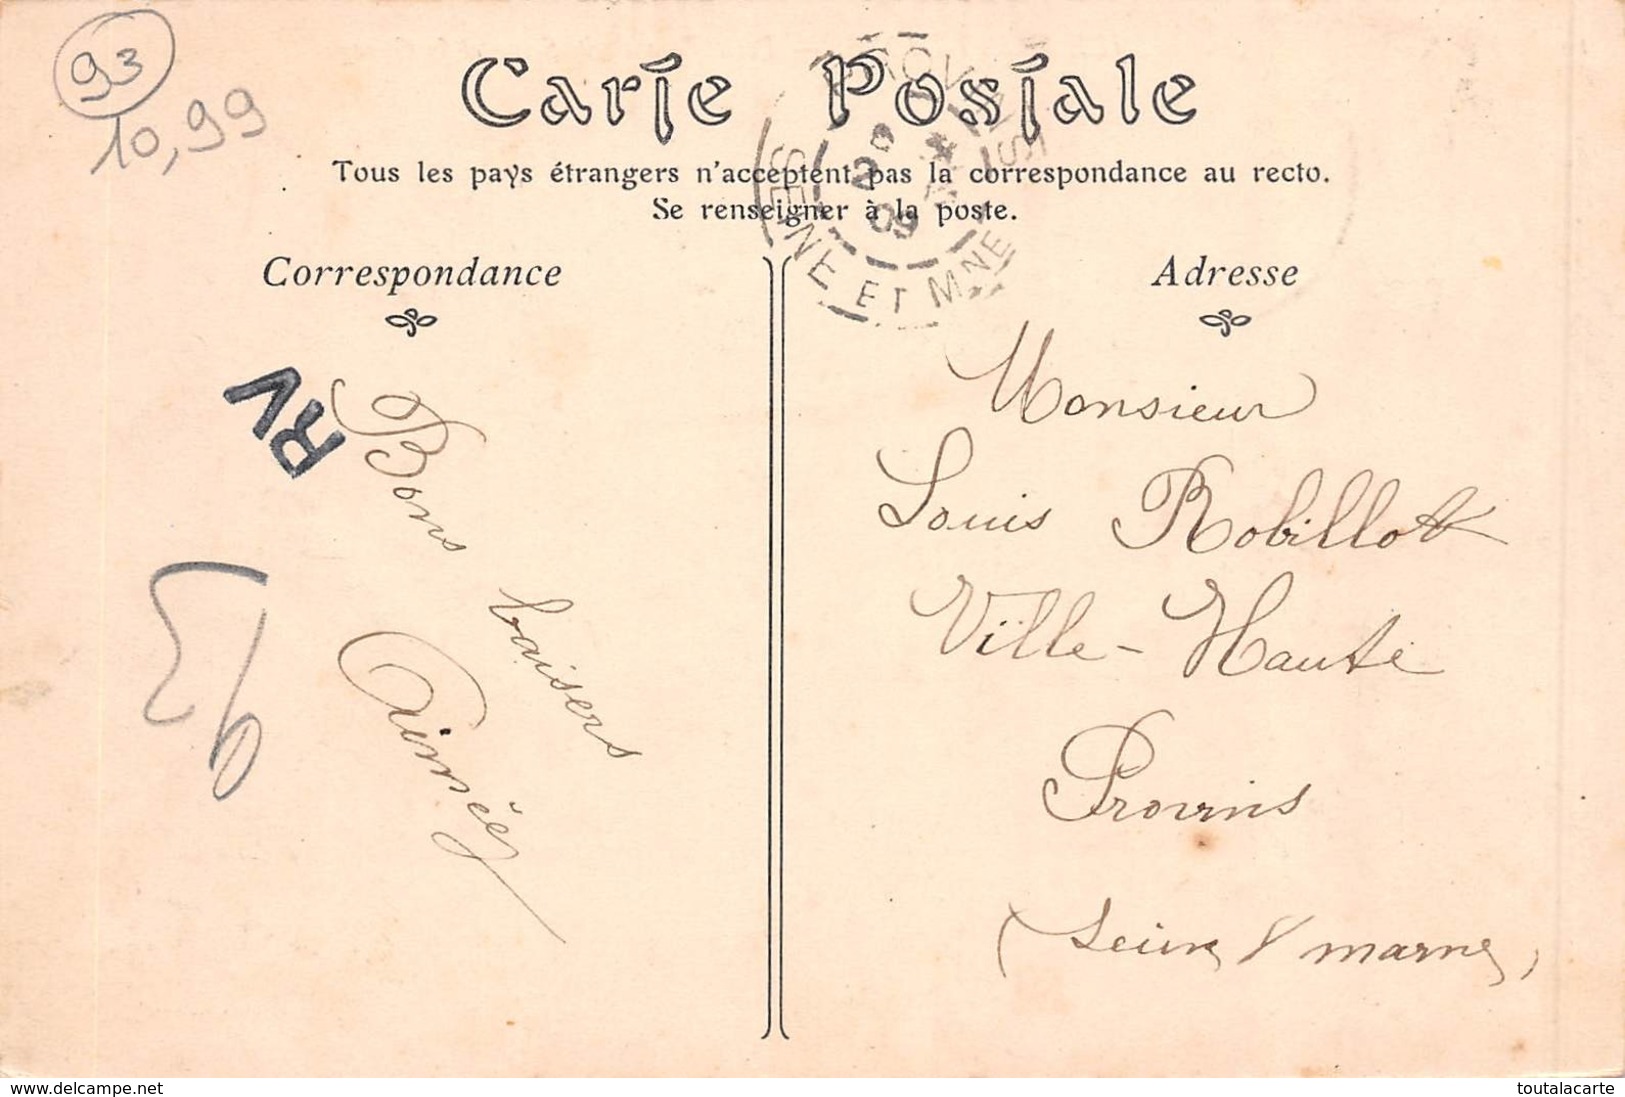 93
10,99
Carte Postale
Tous les pays étrangers n'acceptent pas la correspondance au recto.
Se renseigner à la poste.
PROVINS
SEINE ET MNE
09
Correspondance
Adresse
RV
Bons baisers
Aimée
93
Monsieur
Louis Robillott
Ville-Haute
Provins
(Seine & marne)
www.delcampe.net
toutalacarte